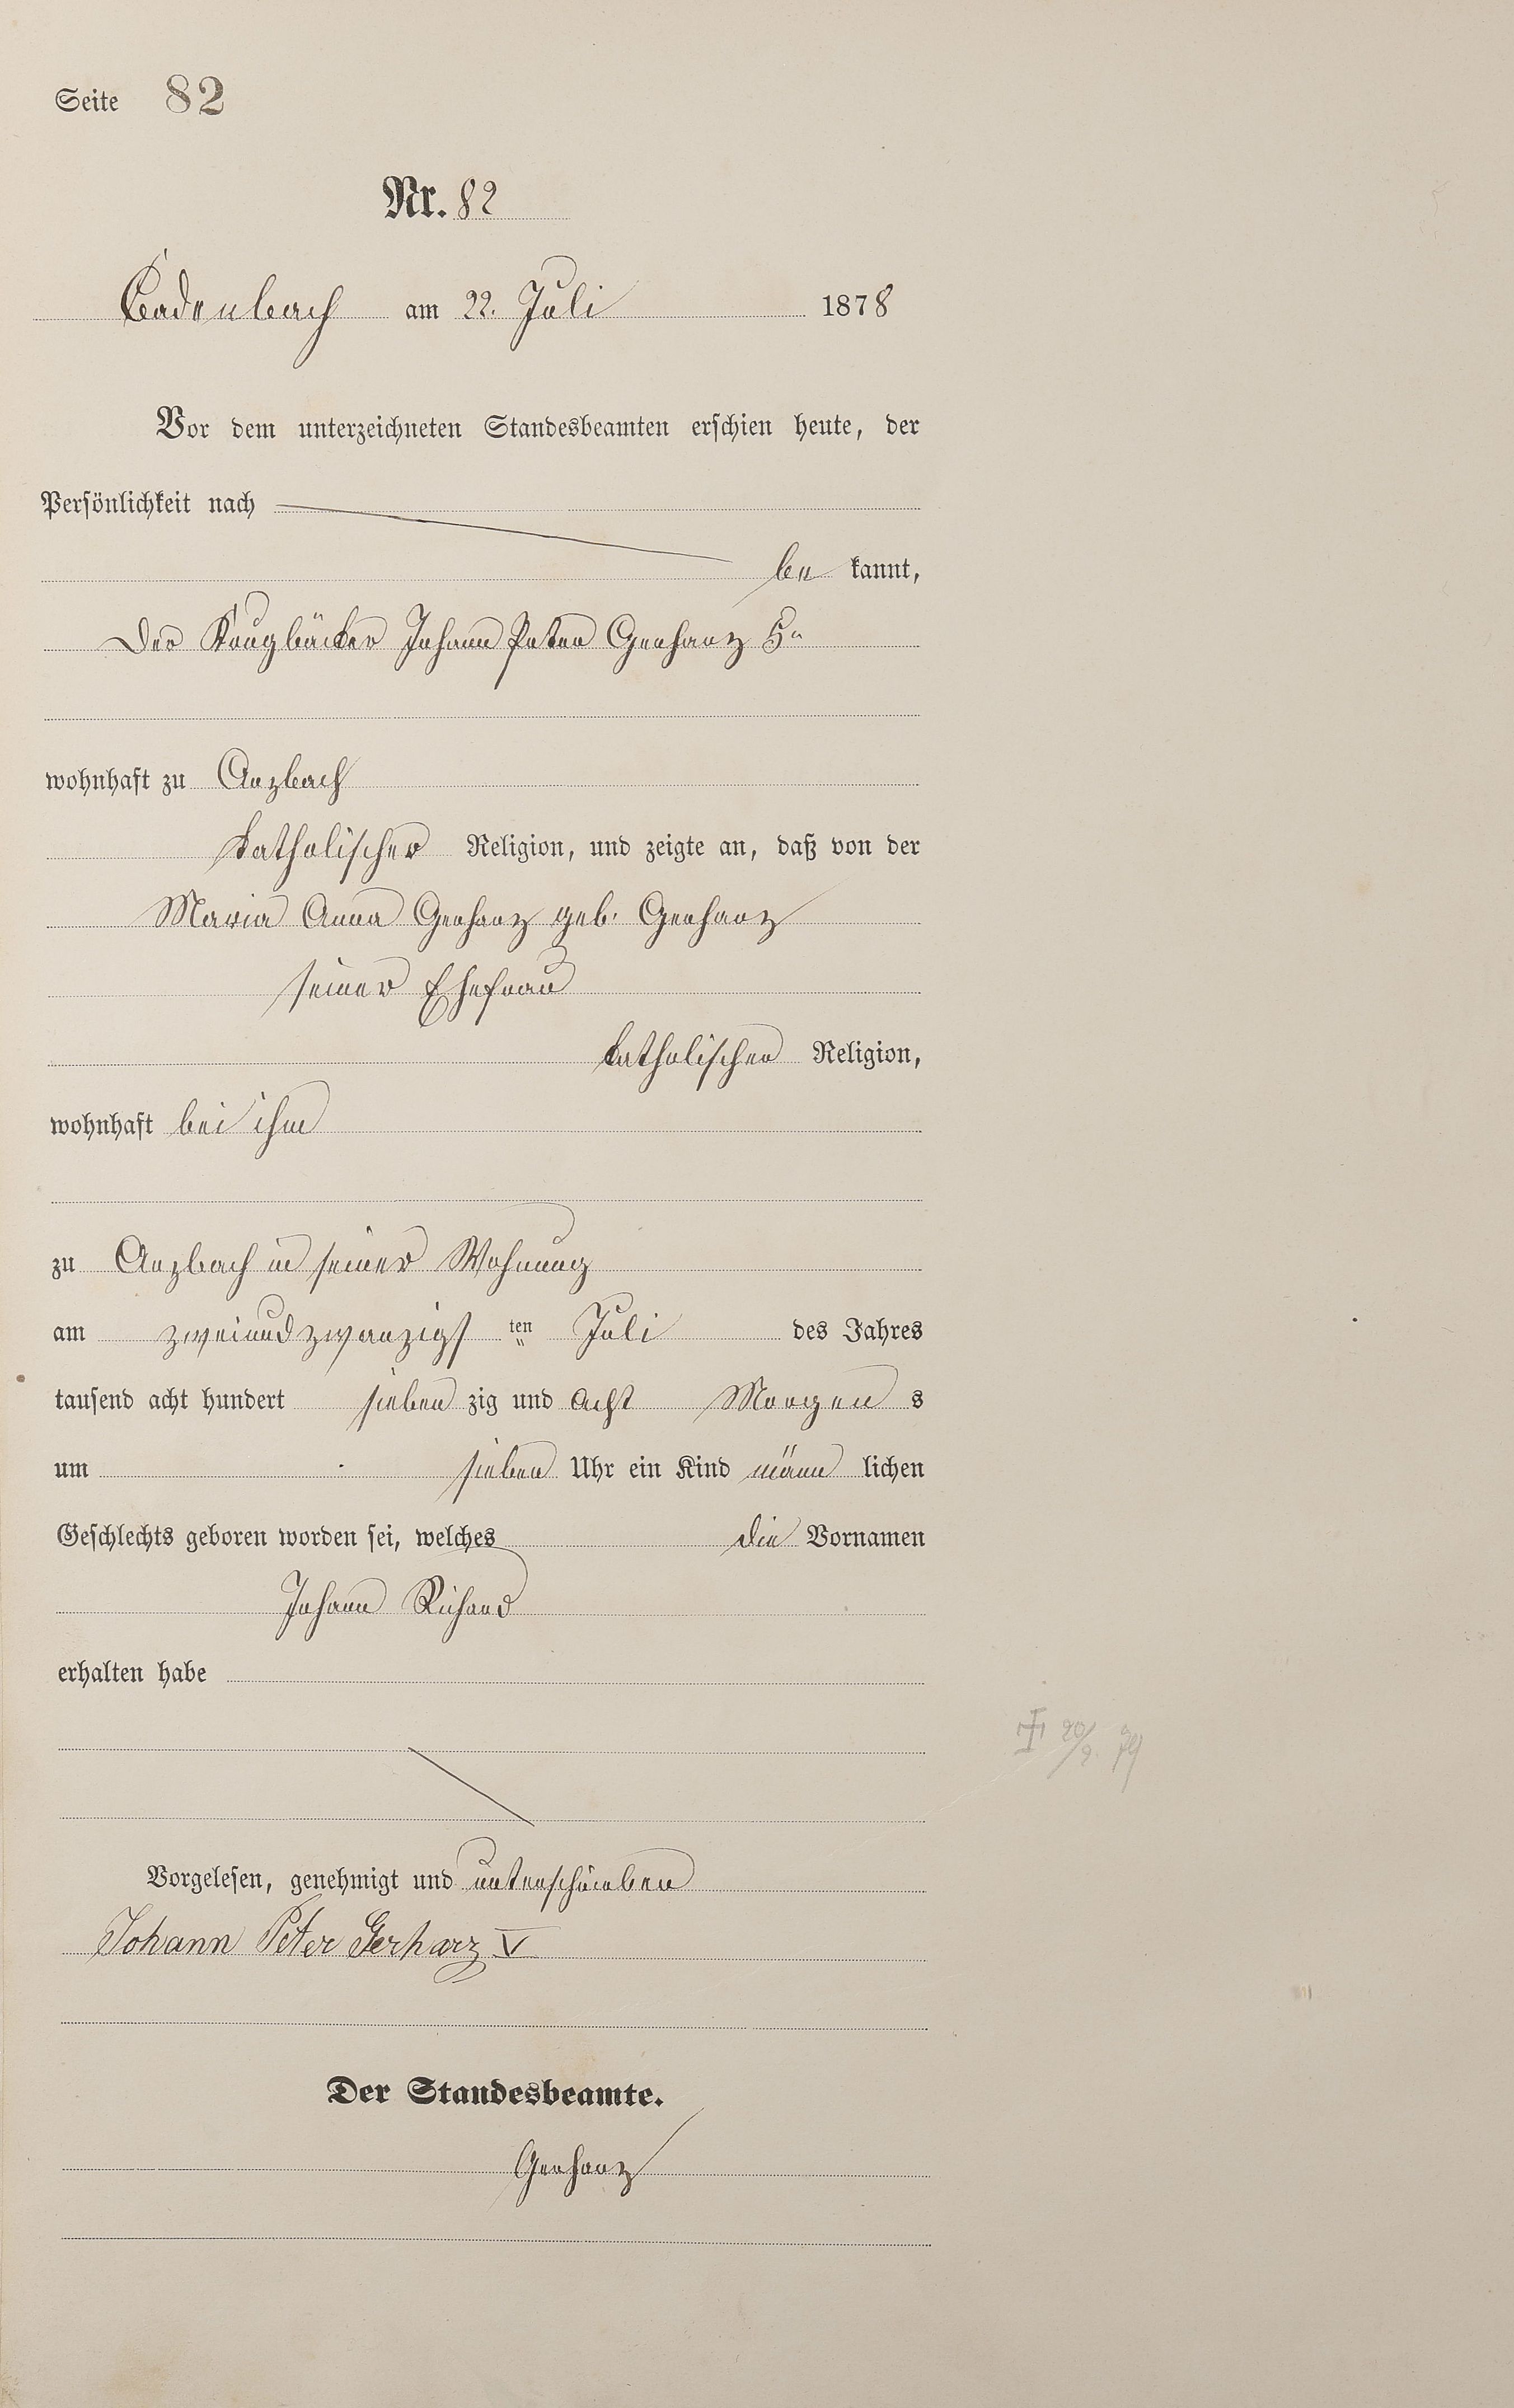 Seite 82
Nr. 82
Badenbach am 22. Juli 1878
Vor dem unterzeichneten Standesbeamten erschien heute, der
Persönlichkeit nach
be kannt,
der Krugbäcker Johann Peter Gerharz 5r
wohnhaft zu Arzbach
katholischer Religion, und zeigte an, daß von der
Maria Anna Gerharz geb. Gerharz
seiner Ehefrau
katholischer Religion,
wohnhaft bei ihm
zu Arzbach in seiner Wohnung
am zweiundzwanzigs ten Juli des Jahres
tausend acht hundert sieben zig und acht Morgen s
um sieben Uhr ein Kind männ lichen
Geschlechts geboren worden sei, welches die Vornamen
Johann Richard
erhalten habe
20/9. 79
Vorgelesen, genehmigt und unterschrieben
Johann Peter Gerharz V
Der Standesbeamte.
Gerharz